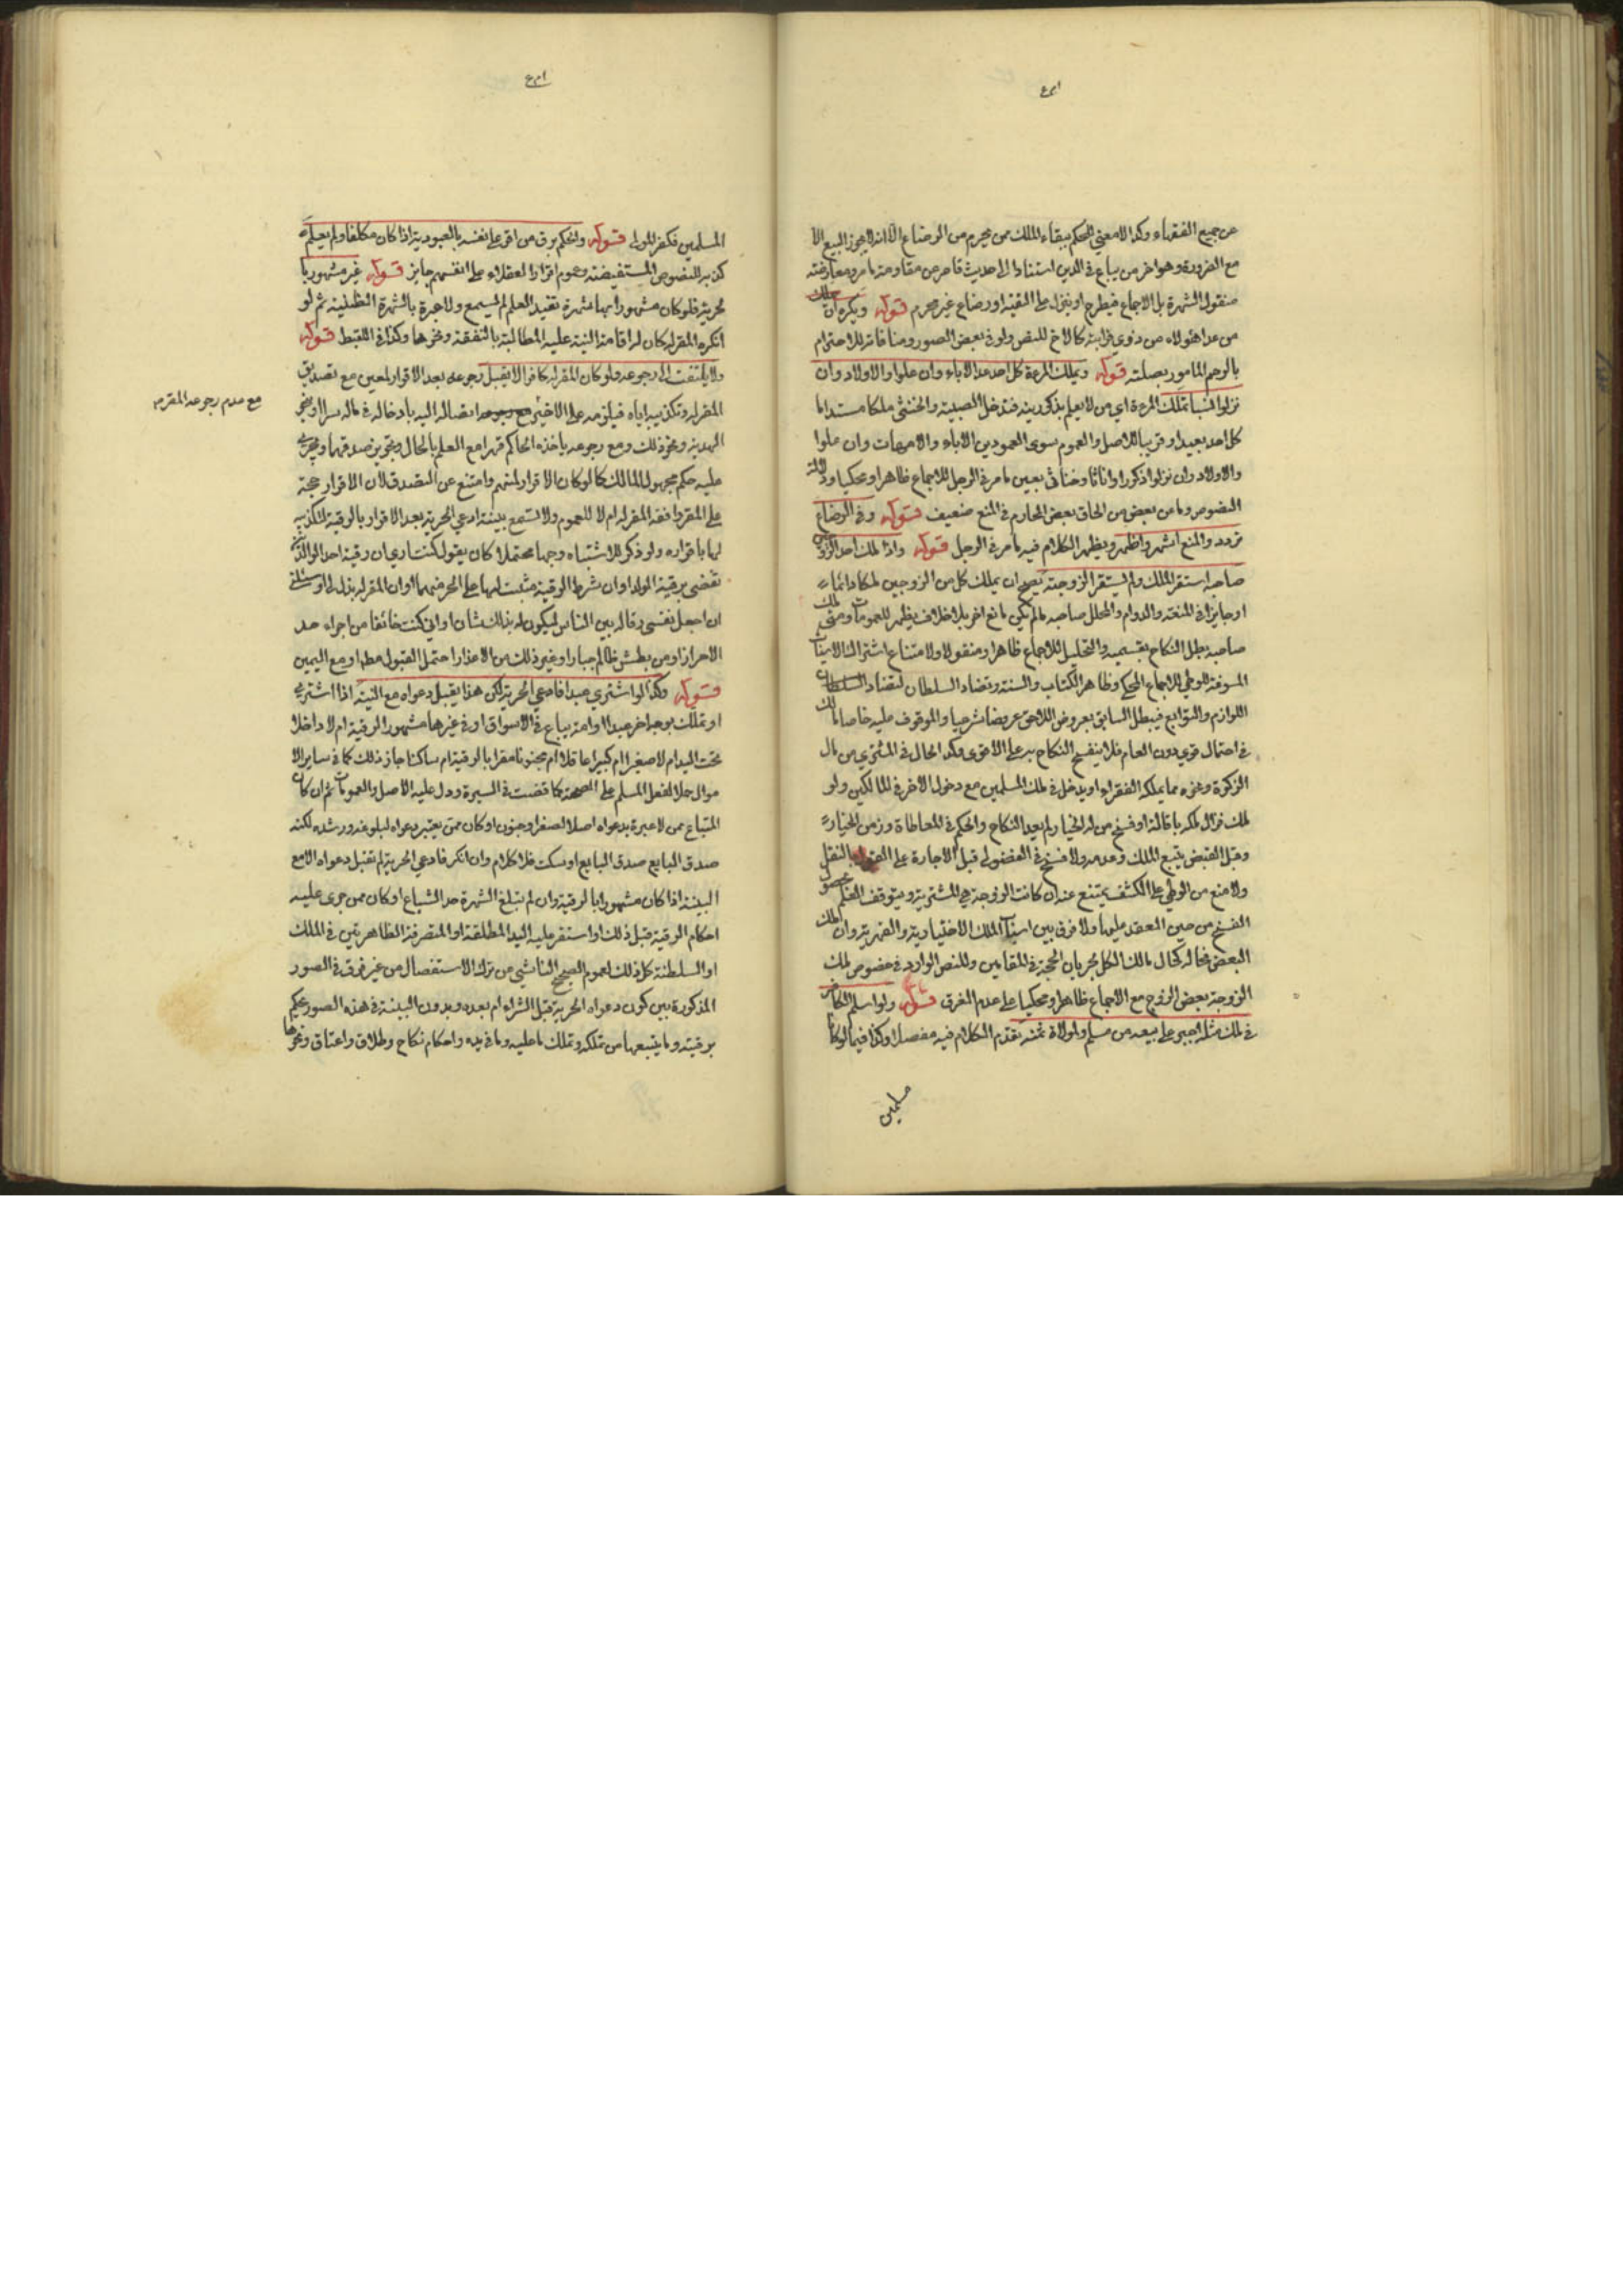 عن جميع الفقهاء وكذا لا معنى للحكم ببقاء الملك ممن يحرم من الرضاع الا انه لا يجوز البيع الا
مع الضرورة وهو اخر من يباع في الدين استنادا الى حديث قاصر عن مقاومة ما مر ومعارضته
منقول الشهرة بل الاجماع فيطرح او ينزل على التقية او رضاع غير محرم قوله ويكره ان يملك
من عدا هؤلاء من ذوي قرابته كالاخ للنص ولو في بعض الصور ومنافاته للاحترام
بالرحم المامور بصلته قوله ويملك المرءة كل احد عدا الاباء وان علوا والاولاد وان
نزلوا نسبا تملك المرءة اي من لا يعلم بذكوريته فتدخل الصبية والخنثى ملكا مستداما
كل احد بعيدا او قريبا للاصل والعموم سوى العمودين الاباء والامهات وان علوا
والاولاد وان نزلوا ذكورا واناثا وخناثى بعين ما مر في الرجل للاجماع ظاهرا ومحكيا ودلالة
النصوص وما عن بعض من الحاق بعض المحارم في المنع ضعيف قوله وفي الرضاع
تردد والمنع اشهر واظهر ويظهر الكلام فيه مما مر في الرجل قوله واذا ملك احد الزوجين
صاحبه استقر الملك ولم يستقر الزوجية يصح ان يملك كل من الزوجين ملكا دائما
او جايزا في المنقه والدوام والمحلل صاحبه ما لم يكن مانع اخر بلا خلاف يظهر للعمومات ومتى ملك
صاحبه بطل النكاح بقسميه والتحليل للاجماع ظاهرا ومنقولا ولامتناع اشتراك الاسباب
المسوغة للوطي للاجماع المحكي وظاهر الكتاب والسنة وتضاد السلطان لتضاد السلطان
اللوازم والتوابع فيبطل السابق بعروض اللاحق عروضا شرعيا والموقوف عليه خاصا مالك
في احتمال قوي دون العام فلا ينفسخ النكاح به على الاقوى وكذا الحال في المشتري من مال
الزكوة وغيره مما يملكه الفقراء او يدخل في ملك المسلمين مع دخول الاخر في المالكين ولو
ملك فزال ملكه باقالة او فسخ من له الخيار لم يعد النكاح والحكم في المعاطاة وزمن الخيار
وقبل القبض يتبع الملك وعدمه ولا فسخ في الفضولي قبل الاجازة على القول بالنقل
ولا منع من الوطي على الكشف يمتنع عنه ان كانت الزوجة هي المشترية ويتوقف العلم بحصول
الفسخ من حين العقد عليها ولا فرق بين اسباب الملك الاختيارية والقهرية وان ملك
البعض فحاله كحال مالك الكل لجريان الحجة في المقامين وللنص الوارد في خصوص ملك
الزوجة بعض الزوج مع الاجماع ظاهرا ومحكيا على عدم الفرق قوله ولو اسلم الكافر
في ملك مثله اجبر على بيعه من مسلم ولمولاه ثمنه تقدم الكلام فيه مفصلا وكذا فيما لو كانا
مسلمين
المسلمين فكفر المولى قوله والحكم برق من اقر على نفسه بالعبودية اذا كان مكلفا ولم يعلم
كذبه للنصوص المستفيضة وعموم اقرار العقلاء على انفسهم جايز قوله غير مشهور با
لحرية فلو كان مشهورا بها شهرة تفيد العلم لم يسمع ولا عبرة بالشهرة الظنية ثم لو
انكره المقر له كان له اقامة البينة عليه المطالبة بالنفقة ونحوها وكذا في اللقيط قوله
ولا يلتفت الى رجوعه ولو كان المقر له كافرا لا يقبل رجوعه بعد الاقرار لمعين مع تصديق
المقر له وتكذيبه اياه فيلزمه على الاخير مع رجوعه ايصاله اليه بادخاله في ماله سرا او بنحو
مع عدم رجوعه المقر به
الهدية ونحو ذلك ومع رجوعه ياخذه الحاكم قهرا مع العلم بالحال وتجويز صدقهما ويجري
عليه حكم مجهول المالك كما لو كان الاقرار لمبهم وامتنع عن التصدق لان الاقرار حجة
على المقر وافقه المقر له ام لا للعموم ولا تسمع بينة ادعي الحرية بعد الاقرار بالرقية لتكذيبه
لها باقراره ولو ذكر للاشتباه وجها محتملا كان يقول كنت ارى ان رقية احد الوالدين
تقضي برقية الولد او ان شرط الرقية مثبت لها على الحر منهما او ان المقر له بذل لي او سئلني
ان اجعل نفسي رقا له بين الناس ليكون له بذلك شان او اني كنت خائفا من اجراء حد
الاحرار او من بطش ظالم جبار او غير ذلك من الاعذار احتمل القبول مطلقا ومع اليمين
قوله وكذا لو اشترى عبدا فادعى الحرية لكن هذا يقبل دعواه مع البينة اذا اشترى
او تملك بوجه اخر عبدا او امة يباع في الاسواق او في غيرها مشهور الرقية ام لا داخلا
تحت اليد ام لا صغيرا ام كبيرا عاقلا ام مجنونا مقرا بالرقية ام ساكتا جاز ذلك كما في ساير الا
موال حملا لفعل المسلم على الصحة كما قضت في السيرة ودل عليه الاصل والعمومات ثم ان كان
المتباع ممن لا عبرة بدعواه اصلا لصغر او جنون او كان ممن يعتبر دعواه لبلوغه ورشده لكنه
صدق البايع صدق البايع او سكت فلا كلام وان انكر فادعى الحرية لم تقبل دعواه الا مع
البينة اذا كان مشهورا بالرقية وان لم تبلغ الشهرة حد الشياع او كان ممن جرى عليه
احكام الرقية قبل ذلك او استقر عليه اليد المطلقة او المتصرفة الظاهرتين في الملك
او السلطنة كل ذلك لعموم الصحيح الناشي من ترك الاستفصال من غير فرق في الصور
المذكورة بين كون دعواه الحرية قبل الشراء ام بعده وبدون البينة في هذه الصور يحكم
برقيته وما يتبعها من تملكه وتملك ما عليه وما في يده واحكام نكاح وطلاق واعتاق ونحوها